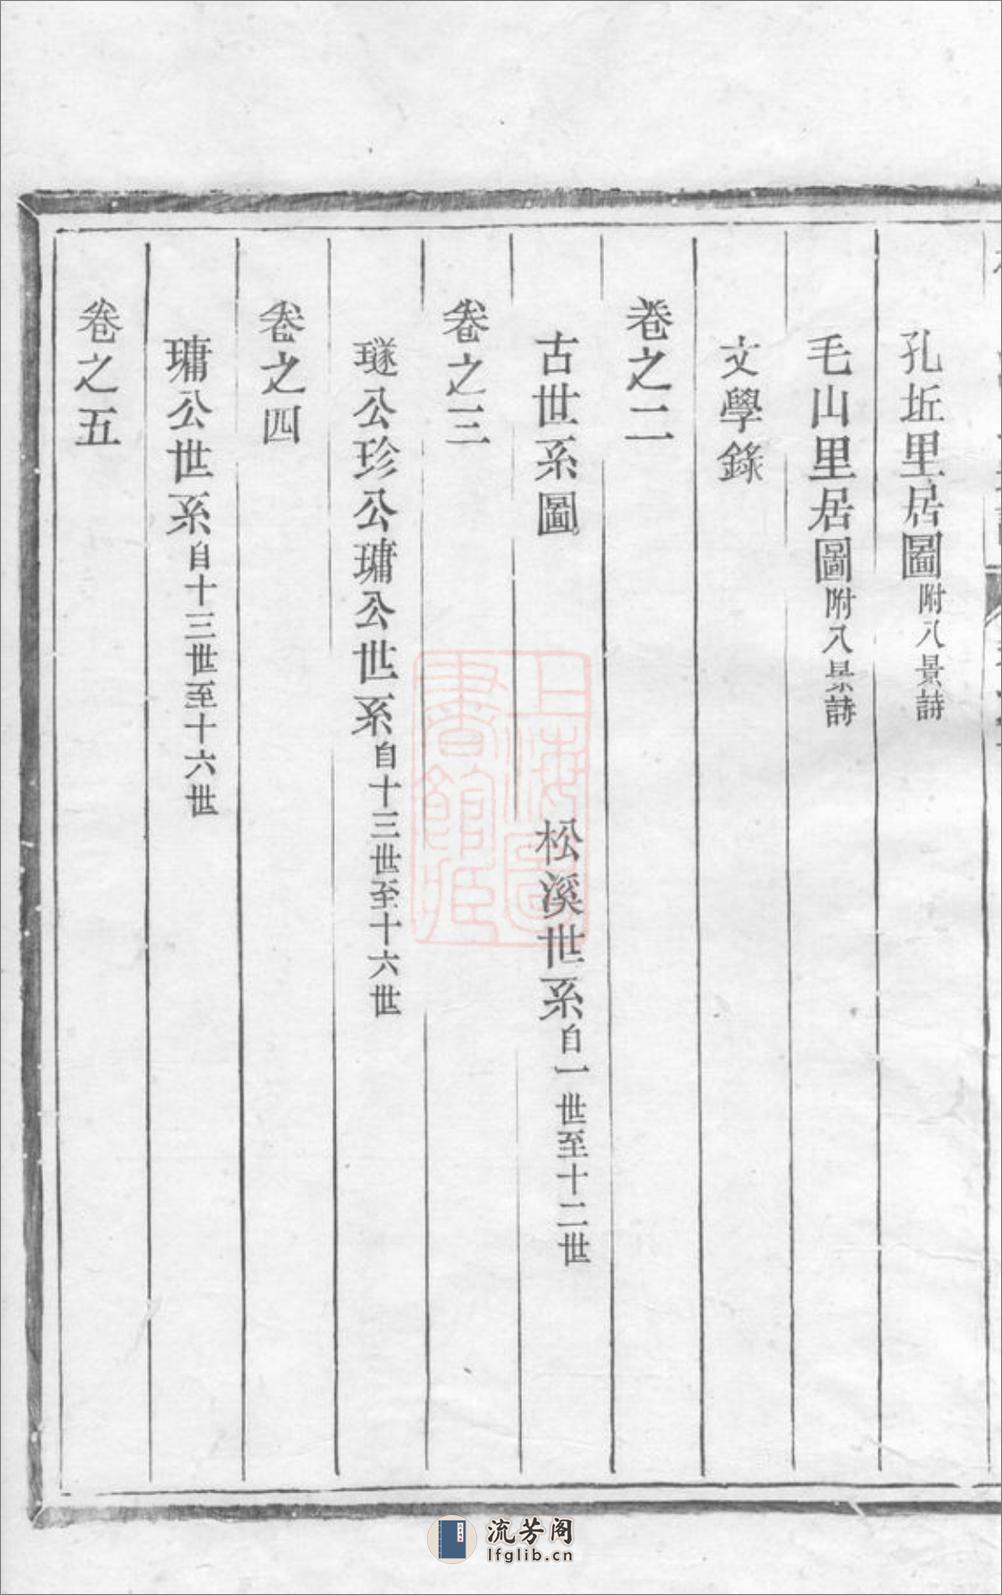 孔坵里居圖附八景詩
毛山里居圖附八景詩
文學錄
卷之二
古世系圖 松溪世系自一世至十二世
卷之三
璲公珍公璛公世系自十三世至十六世
卷之四
璛公世系自十三世至十六世
卷之五
上海圖書館藏
流芳阁
lfglib.cn